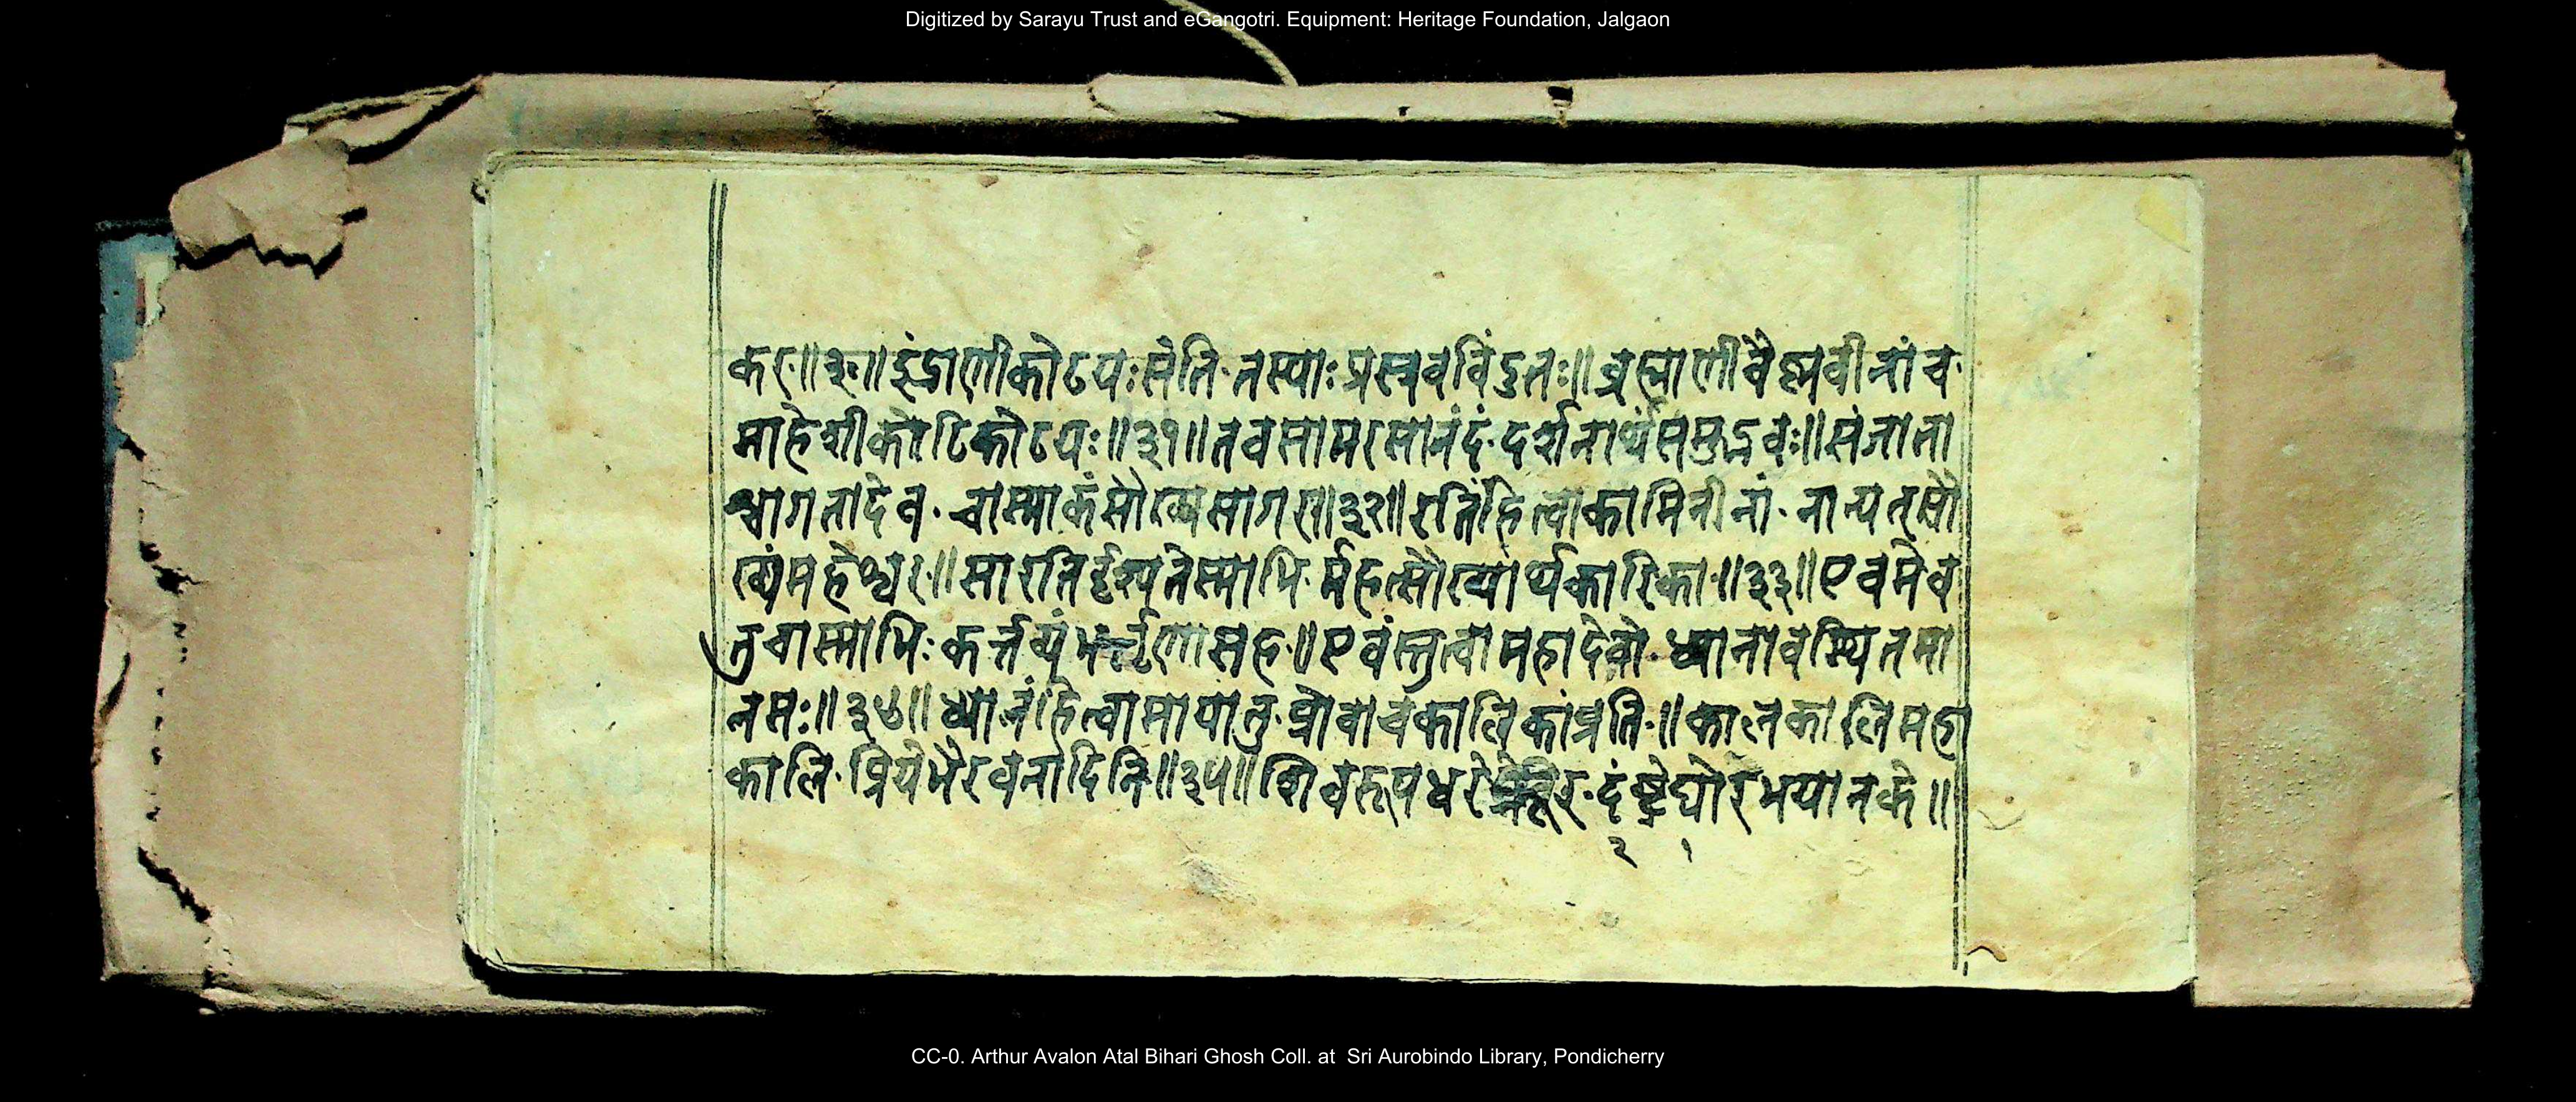 Digitized by Sarayu Trust and eGangotri. Equipment: Heritage Foundation, Jalgaon
कर॥३०॥इंद्राणीकोटयःसंति·तस्याःप्रस्त्रवविंदुतः॥ब्रह्माणीवैष्णवीनांच·
माहेशीकोटिकोटयः॥३१॥तवसामरसानंदं·दर्शनार्थंसमुद्भवः॥संजाता
श्चागतादेव·चास्माकंसौख्यसागर॥३२॥रतिंहित्वाकामिनीनां·नान्यत्सौ
ख्यंमहेश्वर·॥सारतिर्दृश्यतेस्माभि·र्महत्सौख्यार्थकारिका·॥३३॥एवमेव
तुचास्माभिः·कर्त्तव्यंभर्त्तृणासह·॥एवंस्तुत्वामहादेवो·ध्यानावस्थितमा
नसः॥३४॥ध्यानंहित्वामायातु·प्रोवाचकालिकांप्रति·॥कालकालिमहा
कालि·प्रियेभैरवनादिनि॥३५॥शिवरूपधरे दंष्ट्रेघोरभयानके॥
२ १
CC-0. Arthur Avalon Atal Bihari Ghosh Coll. at Sri Aurobindo Library, Pondicherry